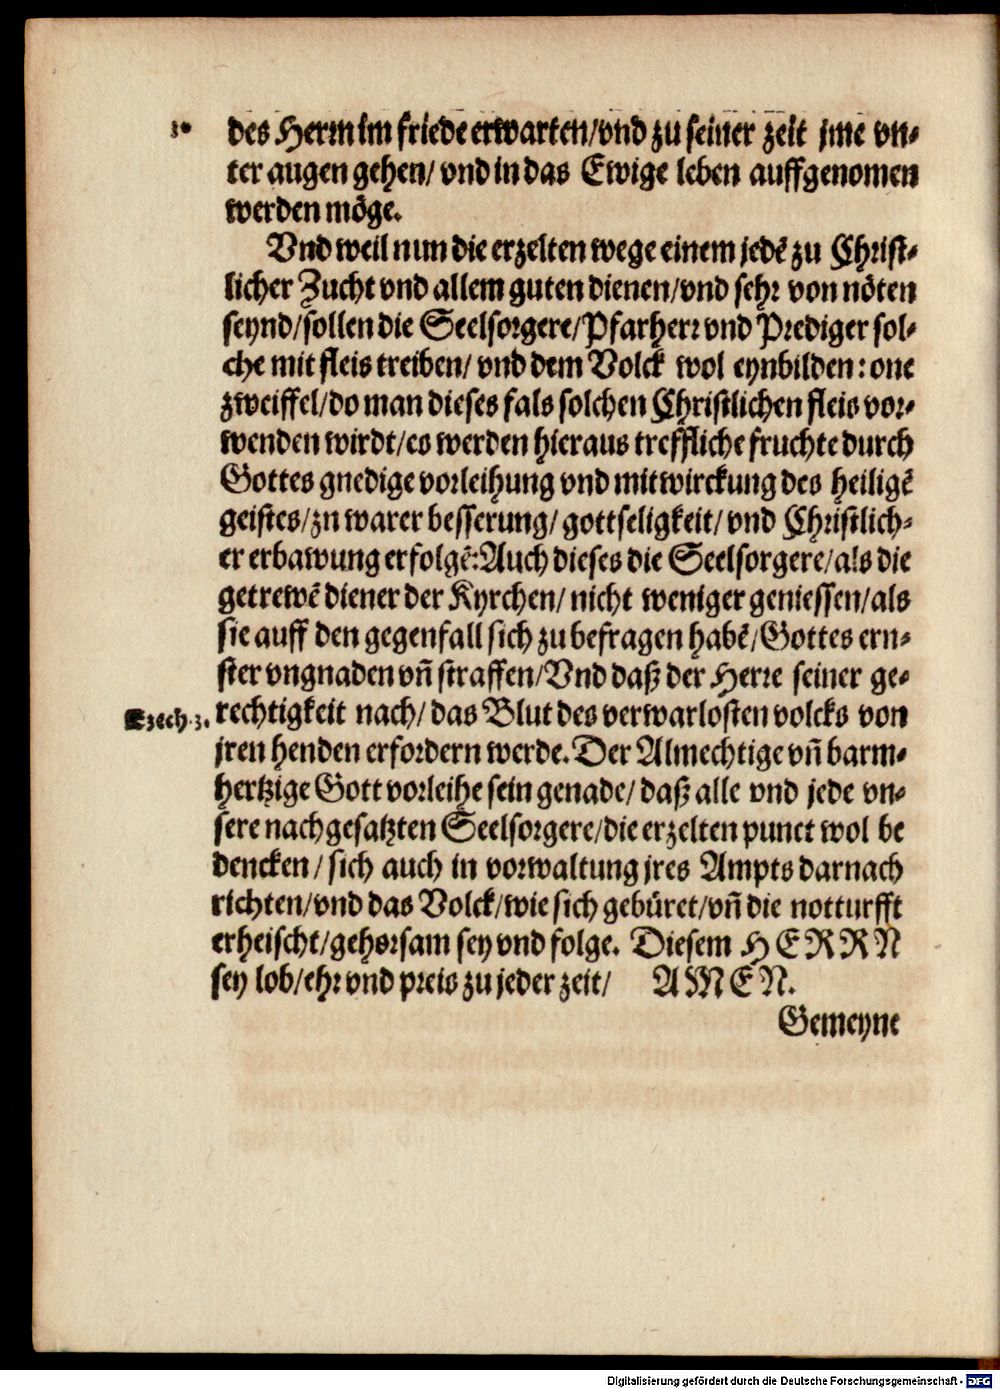 3• des Herrn im friede erwarten/vnd zu seiner zeit jme vn-
ter augen gehen/ vnd in das Ewige leben auffgenomen
werden möge.
Vnd weil nun die erzelten wege einem jedē zu Christ-
licher Zucht vnd allem guten dienen/vnd sehr von nöten
seynd/sollen die Seelsorgere/Pfarherr vnd Prediger sol-
che mit fleis treiben/ vnd dem Volck wol eynbilden: one
zweiffel/do man dieses fals solchen Christlichen fleis vor-
wenden wirdt/es werden hieraus treffliche fruchte durch
Gottes gnedige vorleihung vnd mitwirckung des heiligē
geistes/zu warer besserung/ gottseligkeit/ vnd Christlich-
er erbawung erfolgē: Auch dieses die Seelsorgere/als die
getrewē diener der Kyrchen/ nicht weniger geniessen/als
sie auff den gegenfall sich zu befragen habē/Gottes ern-
ster vngnaden vñ straffen/Vnd daß der Herre seiner ge-
Ezech. 3. rechtigkeit nach/ das Blut des verwarlosten volcks von
jren henden erfordern werde. Der Almechtige vñ barm-
hertzige Gott vorleihe sein genade/ daß alle vnd jede vn-
sere nachgesatzten Seelsorgere/die erzelten punct wol be
dencken/ sich auch in vorwaltung jres Ampts darnach
richten/vnd das Volck/wie sich gebüret/vñ die notturfft
erheischt/gehorsam sey vnd folge. Diesem HERRN
sey lob/ehr vnd preis zu jeder zeit/ AMEN.
Gemeyne
Digitalisierung gefördert durch die Deutsche Forschungsgemeinschaft - DFG